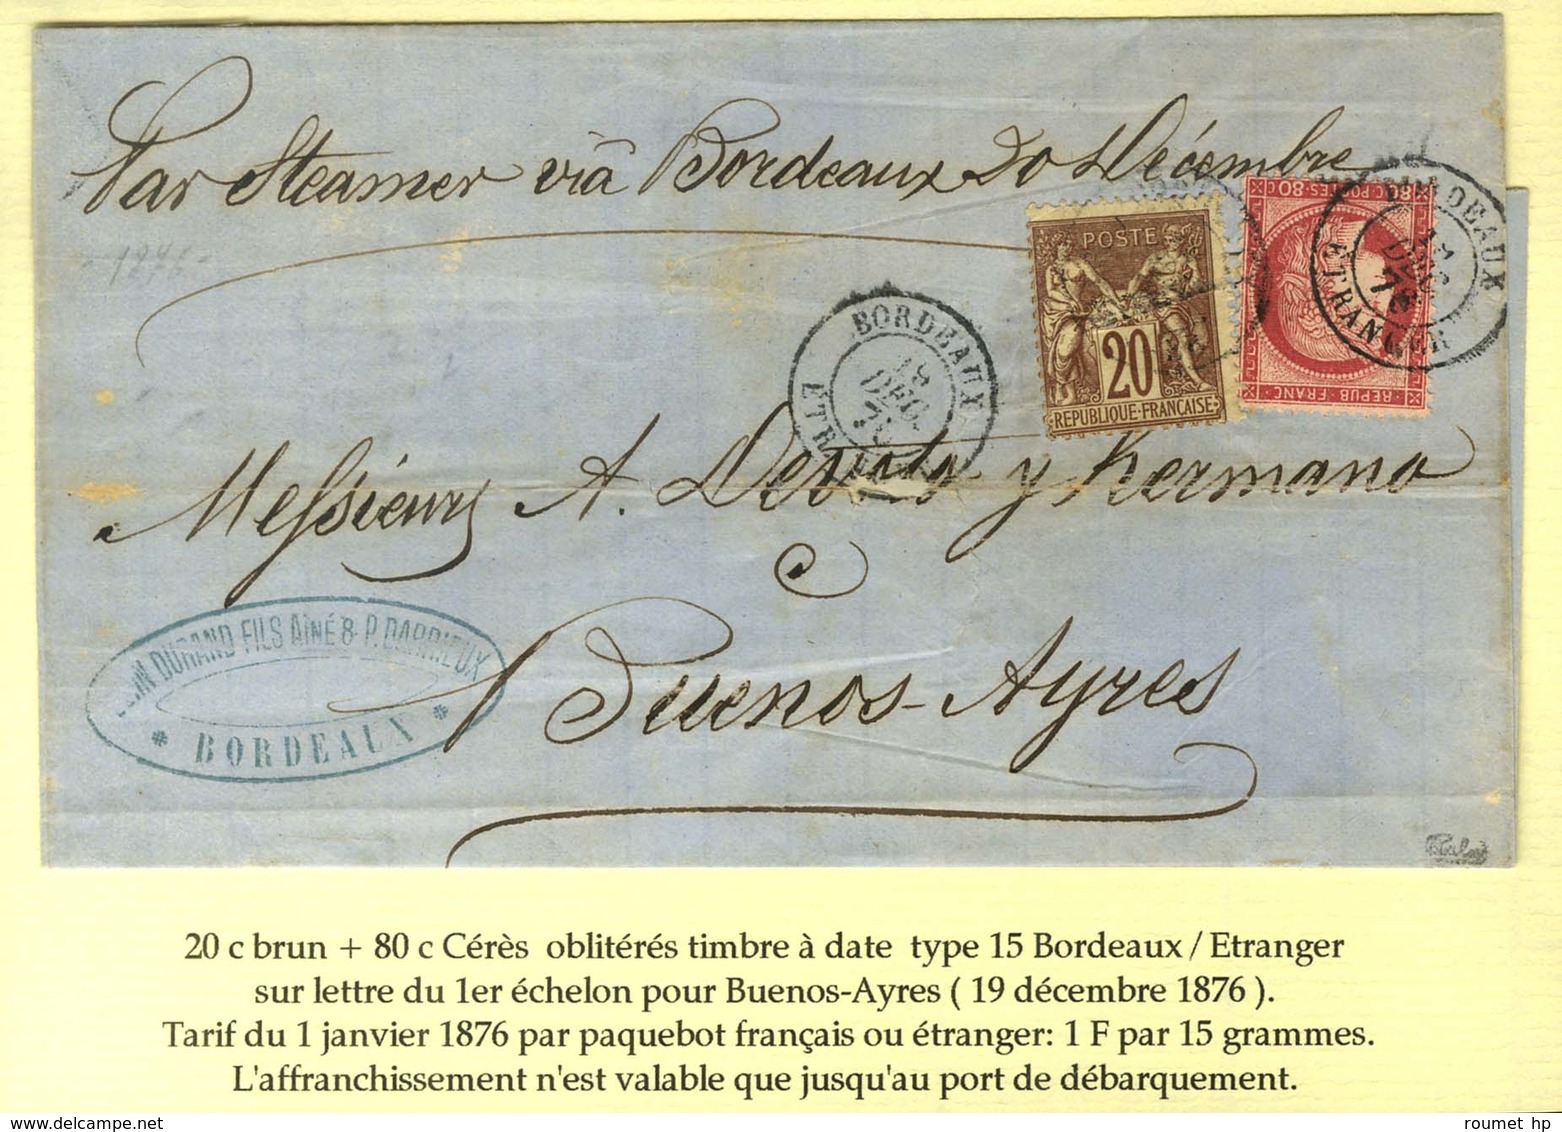 Par Steamer viâ Bordeaux 20 Décembre
1876
POSTE
20
REPUBLIQUE-FRANCAISE
80 C POSTES 80 C
REPUB FRANC
BORDEAUX
18
DEC.
76
ETRANGER
BORDEAUX
DEC
ETRANGER
Messieurs A. Devoto y hermano
Buenos-Ayres
DURAND FILS AINÉ & P. DARRIEUX
* BORDEAUX *
20 c brun + 80 c Cérès oblitérés timbre à date type 15 Bordeaux / Etranger
sur lettre du 1er échelon pour Buenos-Ayres ( 19 décembre 1876 ).
Tarif du 1 janvier 1876 par paquebot français ou étranger: 1 F par 15 grammes.
L'affranchissement n'est valable que jusqu'au port de débarquement.
roumet hp